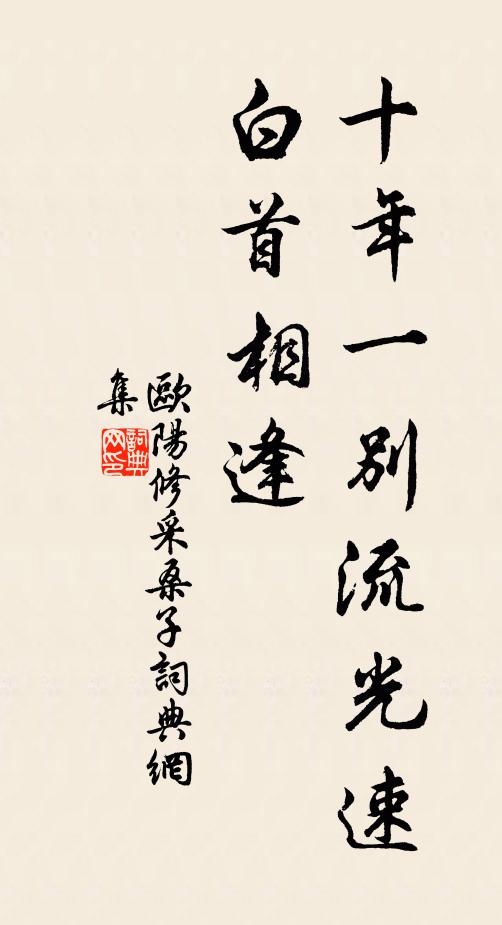 十年一別流光速
白首相逢
歐陽修采桑子詞典網
集
詞典網印